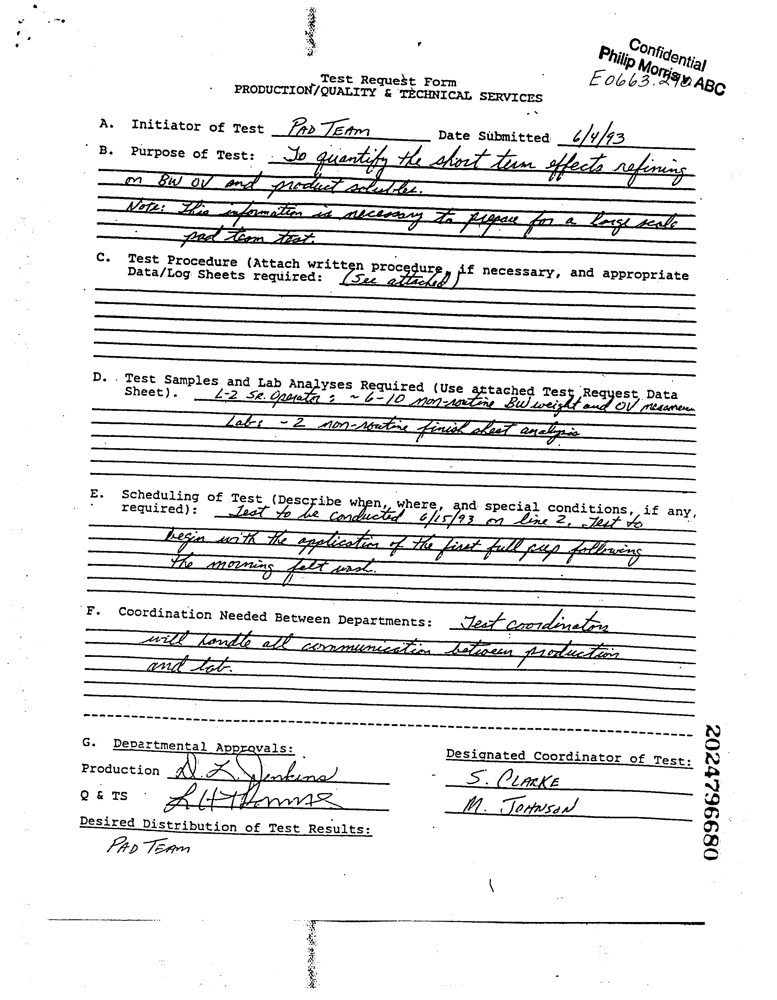 Confidential
Philip Morris v. ABC
E0663.290
Test Request Form
PRODUCTION/QUALITY & TECHNICAL SERVICES
A. Initiator of Test PAD TEAM Date Submitted 6/4/93
B. Purpose of Test: To quantify the short term effects refining
on BW OV and product solubles.
Note: This information is necessary to prepare for a large scale
pad team test.
C. Test Procedure (Attach written procedure, if necessary, and appropriate
Data/Log Sheets required: (See attached)
D. Test Samples and Lab Analyses Required (Use attached Test Request Data
Sheet). L-2 SR. Operator: ~ 6-10 non-routine BW weight and OV
Lab: ~2 non-routine finish sheet analysis
E. Scheduling of Test (Describe when, where, and special conditions, if any,
required): Test to be conducted 6/15/93 on line 2. Test to
begin with the application of the first full following
the morning felt wash.
F. Coordination Needed Between Departments: Test coordinators
will handle all communication between production
and lab.
G. Departmental Approvals:
Designated Coordinator of Test:
Production D. L. Jenkins
S. CLARKE
Q & TS
M. JOHNSON
Desired Distribution of Test Results:
PAD TEAM
2024796680